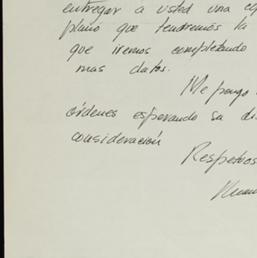 entregar a usted una
plano que tendremos la
que iremos completando
mas datos.
Me pongo
órdenes esperando su
consideración